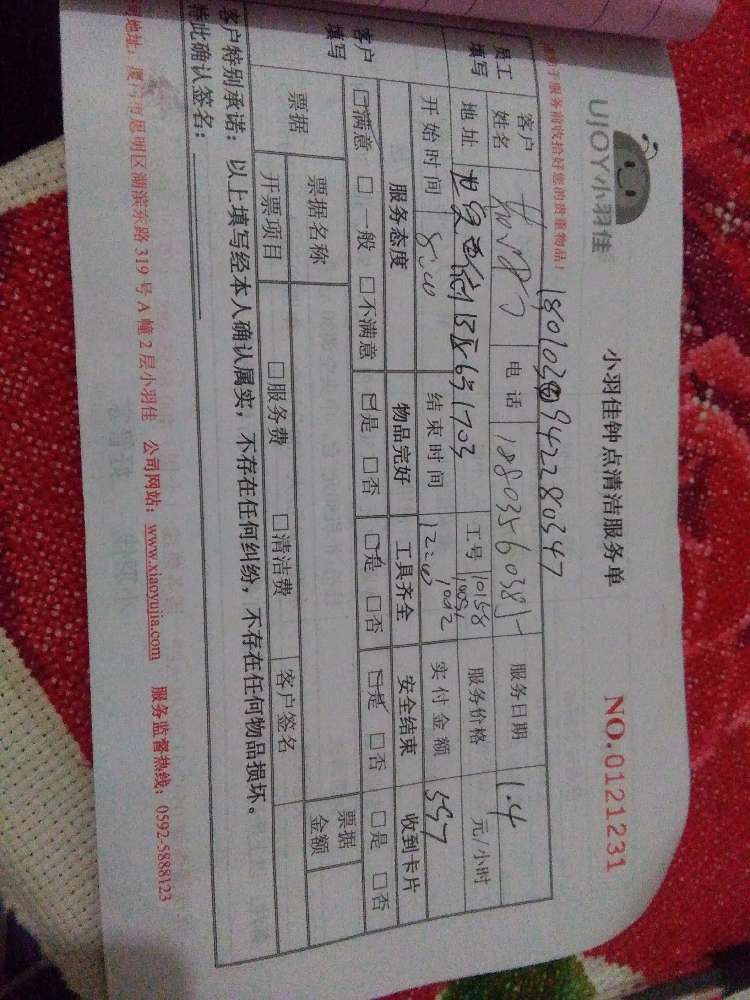 UJOY小羽佳
小羽佳钟点清洁服务单
NO.0121231
于服务前收拾好您的贵重物品！
员工填写
客户姓名
电话
服务日期 1.4
地址
工号 10158
服务价格 元/小时
开始时间 8:00
结束时间 12:00
实付金额 597
客户填写
服务态度 物品完好 工具齐全 安全结束 收到卡片
□满意 □一般 □不满意 □是 □否 □是 □否 □是 □否 □是 □否
票据
票据名称
票据金额
开票项目 □服务费 □清洁费 客户签名
客户特别承诺：以上填写经本人确认属实，不存在任何纠纷，不存在任何物品损坏。
特此确认签名：
地址：厦门市思明区湖滨东路319号A幢2层小羽佳 公司网站：www.xiaoyujia.com 服务监督热线：0592-5888123